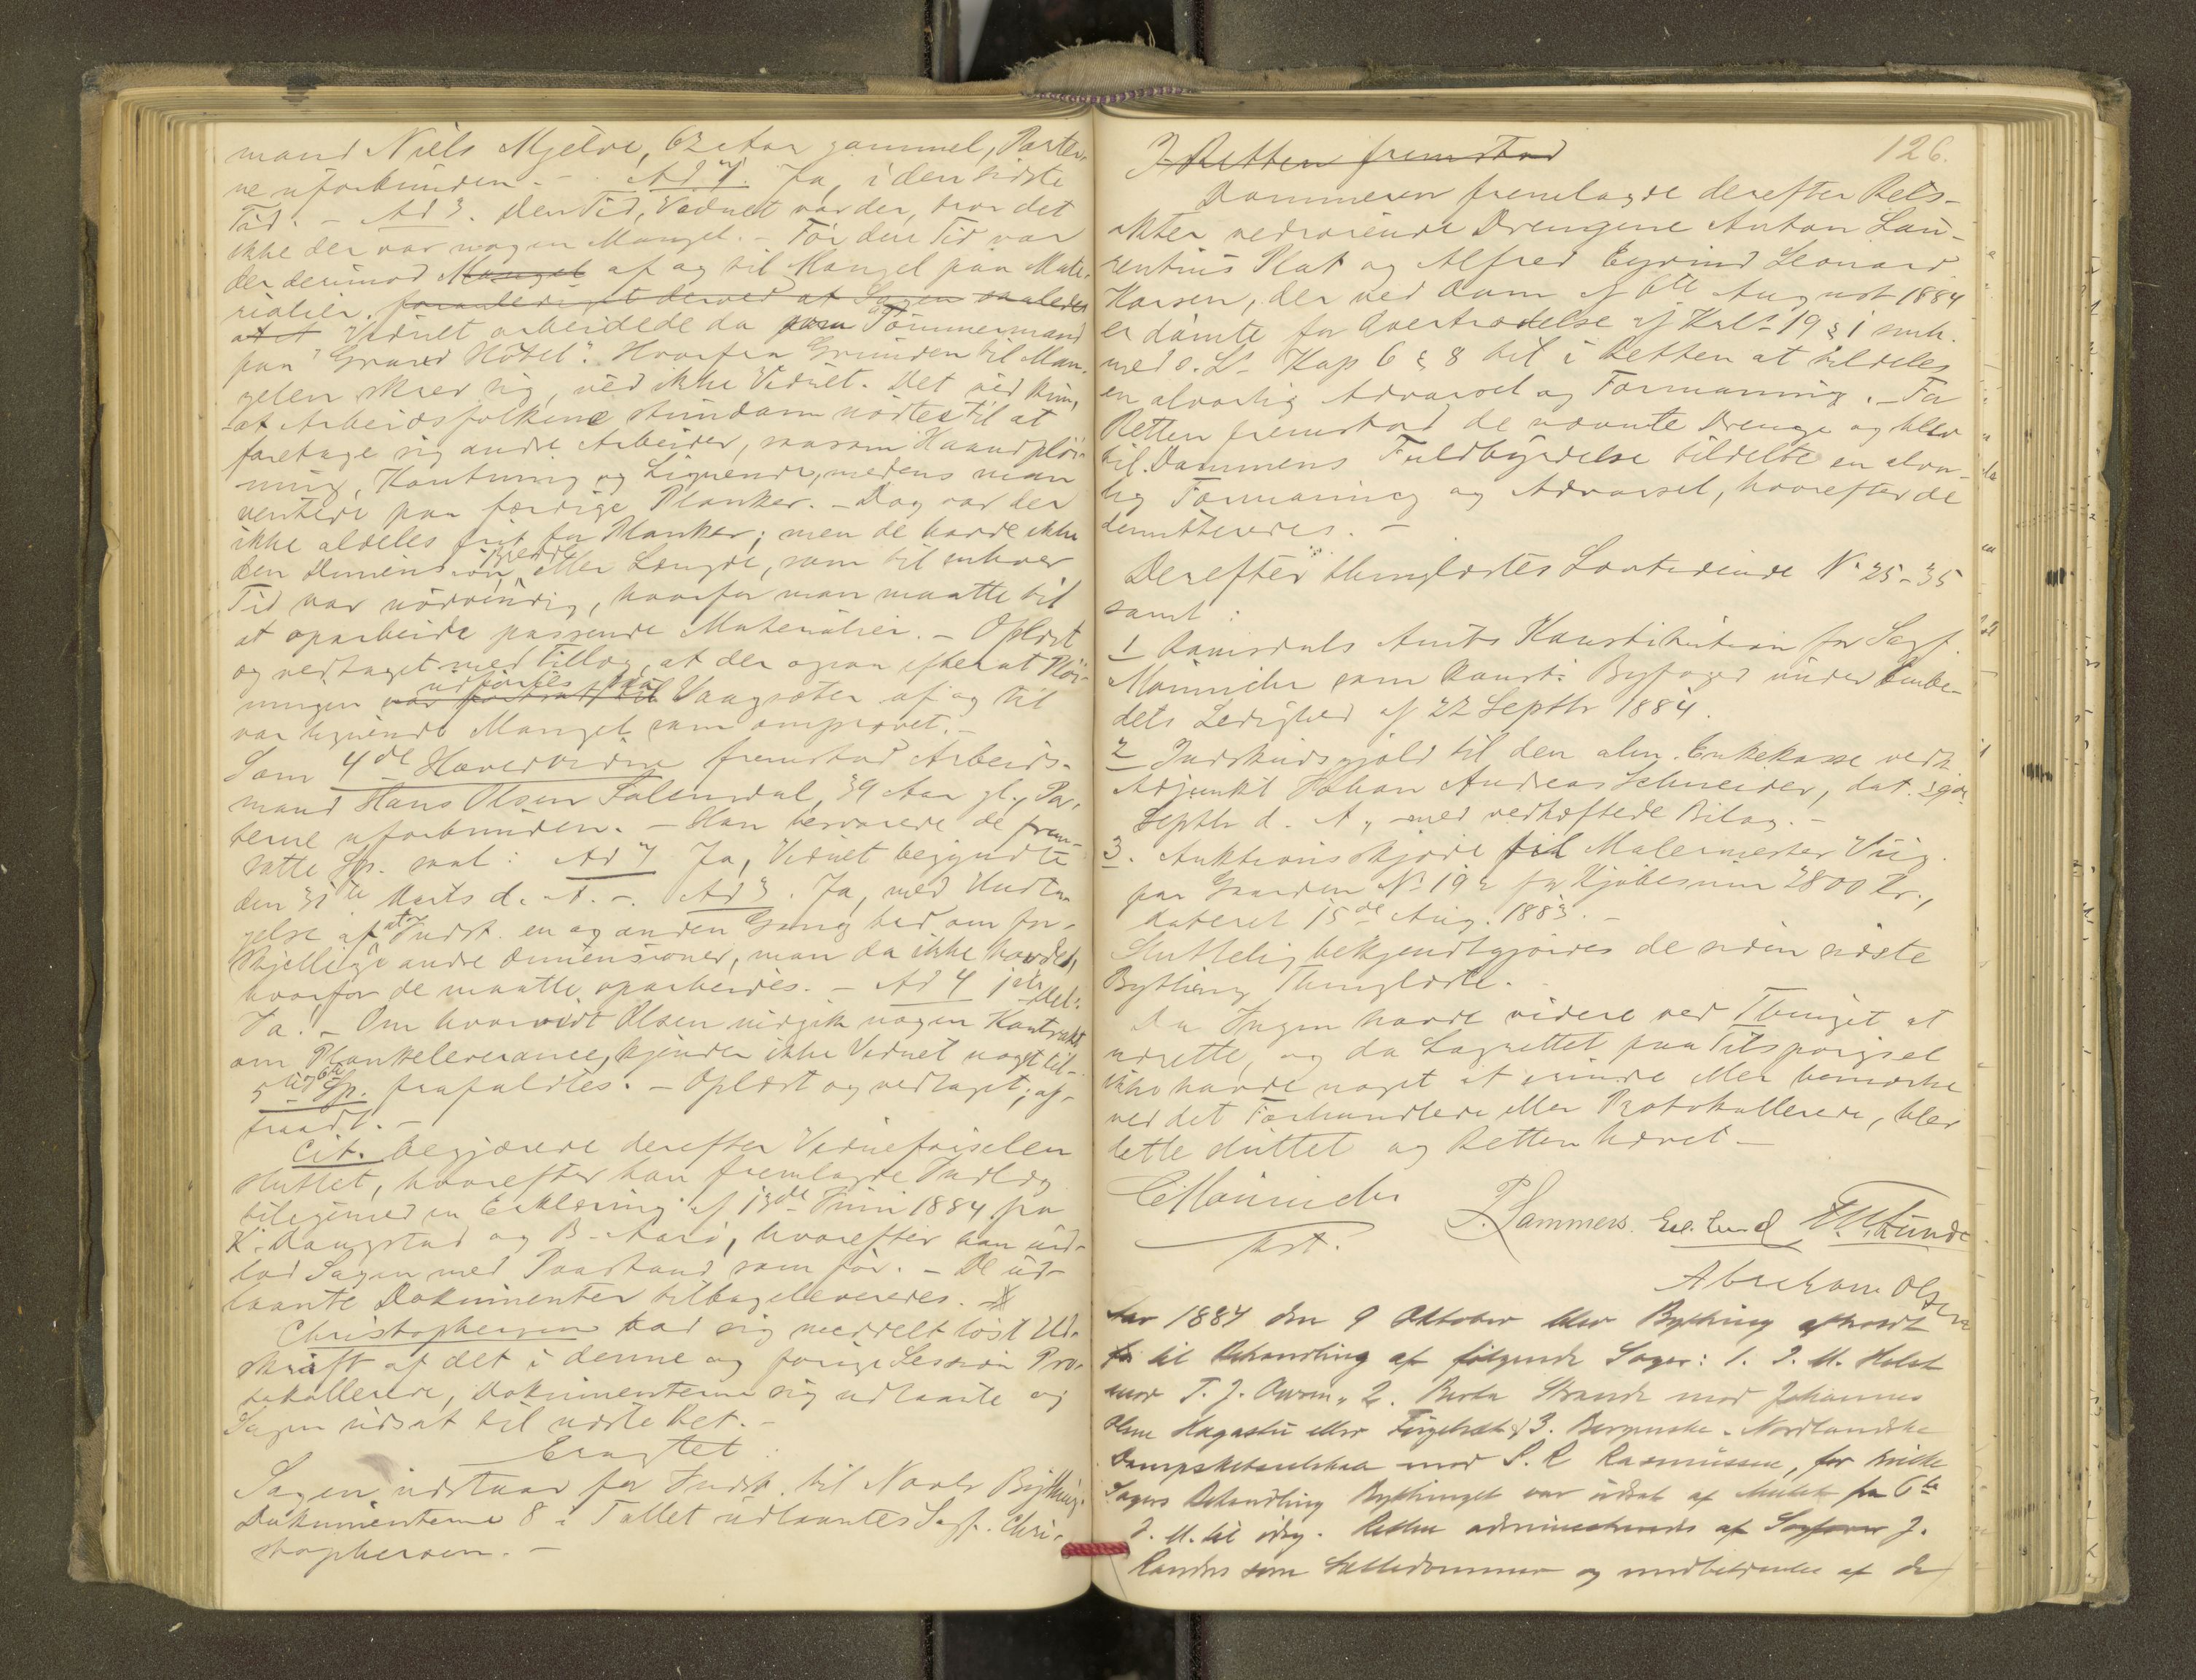 mand Niels Mjelve, 62 Aar gammel, Parter-
ne uforbunden. - Ad 1. Ja, i den sidste
Tid. - Ad 3. Den Tid, Vidnet var der, tror det
ikke der var nogen Mangel. - Før den Tid var
der derimod Mangel af og til Mangel paa Mate-
rialier, foranlediget derved at Sagen saaledes
at et Vidnet arbeidede da som Tømmermand
paa "Grand Hôtel". Hvorfra Grunden til Man-
gelen skrev sig, ved ikke Vidnet. Det ved kun,
at Arbeidsfolkene stundom nødtes til at
foretage sig andre Arbeider, saasom Haandpløi-
ning, Kantning og Lignende, medens man
ventede paa færdige Planker. - Dog var der
ikke aldeles frit for Planker; men de havde ikke
den Dimension, Bredde eller Længde, som til enhver
Tid var nødvendig, hvorfor man maatte til
at oparbeide passende Materialier. - Oplæst
og vedtaget med Tillæg, at der ogsaa efterat Pløi-
ningen var fortsat til udførtes paa Vaagsæter af og til
var lignende Mangel som omprovet. -
Som 4de Hovedvidne fremstod Arbeids-
mand Hans Olsen Falensdal, 39 Aar gl., Par-
terne uforbunden. - Han besvarede de frem-
satte Sp. saal: Ad 1 Ja, Vidnet begyndte
den 31te Marts d. A. -. Ad 3. Ja, med Undta-
gelse af at Indst. en og anden Gang bad om for-
skjellige andre Dimensioner, man da ikke havde,
hvorfor de maatte oparbeides. - Ad 4 1ste Del:
Ja. - Om hvorvidt Olsen indgik nogen Kontrakt
om Plankeleverance, kjender ikke Vidnet noget til. -
5te og 6te Sp. frafaldtes. - Oplæst og vedtaget; af-
traadt. -
Cit. begjærede derefter Vidneførselen
sluttet, hvorefter han fremlagde Indlæg
tilligemed en Erklæring af 13de Juni 1884 fra
K. Dangstad og B. Aarø, hvorefter han ind-
lod Sagen med Paastand som før. - De ud-
laante Dokumenter tilbageleveredes. -
Christophersen bad sig meddelt løst Ud-
skrift af det i denne og forige Session Pro-
tokollerede, Dokumenterne sig udlaante og
Sagen udsat til næste Ret. -
Eragtet
Sagen udstaar for Indst. til Novbr Bything.
Dokumenterne 8 i Tallet udlaantes Sagf. Chri-
stophersen. -
126.
I Retten fremstod
Dommeren fremlagde derefter Rets-
akter vedrørende Drengene Anton Lau-
rentius Plat og Alfred Eyvind Leonard
Karsen, der ved Dom af 6te August 1884
er dømte for Overtrædelse af Krls 19 § 1 smh.
med s. L.s Kap 6 § 8 til i Retten at tildeles
en alvorlig Advarsel og Formaning. - For
Retten fremstod de nævnte Drenge og blev
til Dommens Fuldbyrdelse tildelte en alvor-
lig Formaning og Advarsel, hvorefter de
demitteredes. -
Derefter thinglæstes Lovtidende No 25-35
samt:
1 Romsdals Amts Konstitution for Sagf.
Mørnicher som konst. Byfoged under Embe-
dets Ledighed af 22 Septbr 1884.
2 Indskudsgjæld til den alm. Enkekasse vedk.
Adjunkt Johan Andreas Schneider, dat. 29de
Septbr d. A., med vedhæftede Bilag. -
3. Auktionsskjøde til Malermester Viig
paa Gaarden No 192 for Kjøbesum 2800 Kr.,
dateret 15de Aug. 1883. -
Sluttelig bekjendtgjordes de siden sidste
Bything Thinglæste. -
Da Ingen havde videre ved Thinget at
udrette, og da Lagrettet paa Tilspørgsel
ikke havde noget at erindre eller bemærke
ved det Forhandlede eller Protokollerede, blev
dette sluttet og Retten hævet -
C Mørnicher
kst.
P. Lammers. Ed. Lund E. M. Lunde
Abraham Olsen
Aar 1884 den 9 Oktober blev Bything afholdt
for til Behandling af følgende Sager: 1. J. M. Holst
mod T. J. Owren, 2. Berta Strande mod Johannes
Olsen Hagastu eller Fürgelsæt, 3. Bergenske - Nordlandske
Dampskibsselskab mod P. R Rasmussen, for hvilke
Sagers Behandling Bythinget var udsat af Mulct fra 6te
d. M. til idag. Retten administreredes af Sagfører J.
Randers som Sættedommer og medbetjentes af de